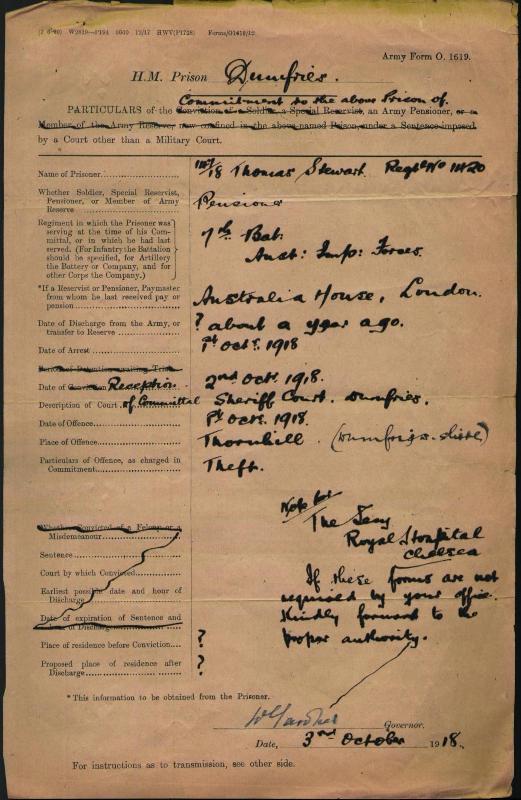 W2819—P194 6000 12/17 HWV(P1728) Forms/O1619/12
Army Form O. 1619.
H.M. Prison Dumfries.
Commitment to the above Prison of
PARTICULARS of the Conviction of a Soldier, a Special Reservist, an Army Pensioner, or a
Member of the Army Reserve, now confined in the above-named Prison, under a Sentence imposed
by a Court other than a Military Court.
Name of Prisoner Thomas Stewart. Regtl No 1420
Whether Soldier, Special Reservist,
Pensioner, or Member of Army
Reserve Pensioner
Regiment in which the Prisoner was
serving at the time of his Com-
mittal, or in which he had last
served. (For Infantry the Battalion
should be specified, for Artillery
the Battery or Company, and for
other Corps the Company.)
7th Bat:
Aust: Imp: Forces.
*If a Reservist or Pensioner, Paymaster
from whom he last received pay or
pension Australia House, London.
Date of Discharge from the Army, or
transfer to Reserve ? about a year ago.
Date of Arrest 1st Octr. 1918
Date of Conviction Reception 2nd Octr. 1918.
Description of Court of Committal Sheriff Court, Dumfries.
Date of Offence 1st Octr. 1918.
Place of Offence Thornhill (Dumfries-shire)
Particulars of Offence, as charged in
Commitment Theft.
Whether Convicted of a Felony or a
Misdemeanour
Sentence
Court by which Convicted
Earliest possible date and hour of
Discharge
Date of expiration of Sentence and
of Discharge
Place of residence before Conviction ?
Proposed place of residence after
Discharge ?
Note for
The Secy
Royal Hospital
Chelsea
If these forms are not
required by your office.
Kindly forward to the
proper authority.
* This information to be obtained from the Prisoner.
Governor.
Date, 3rd October 1918.
For instructions as to transmission, see other side.